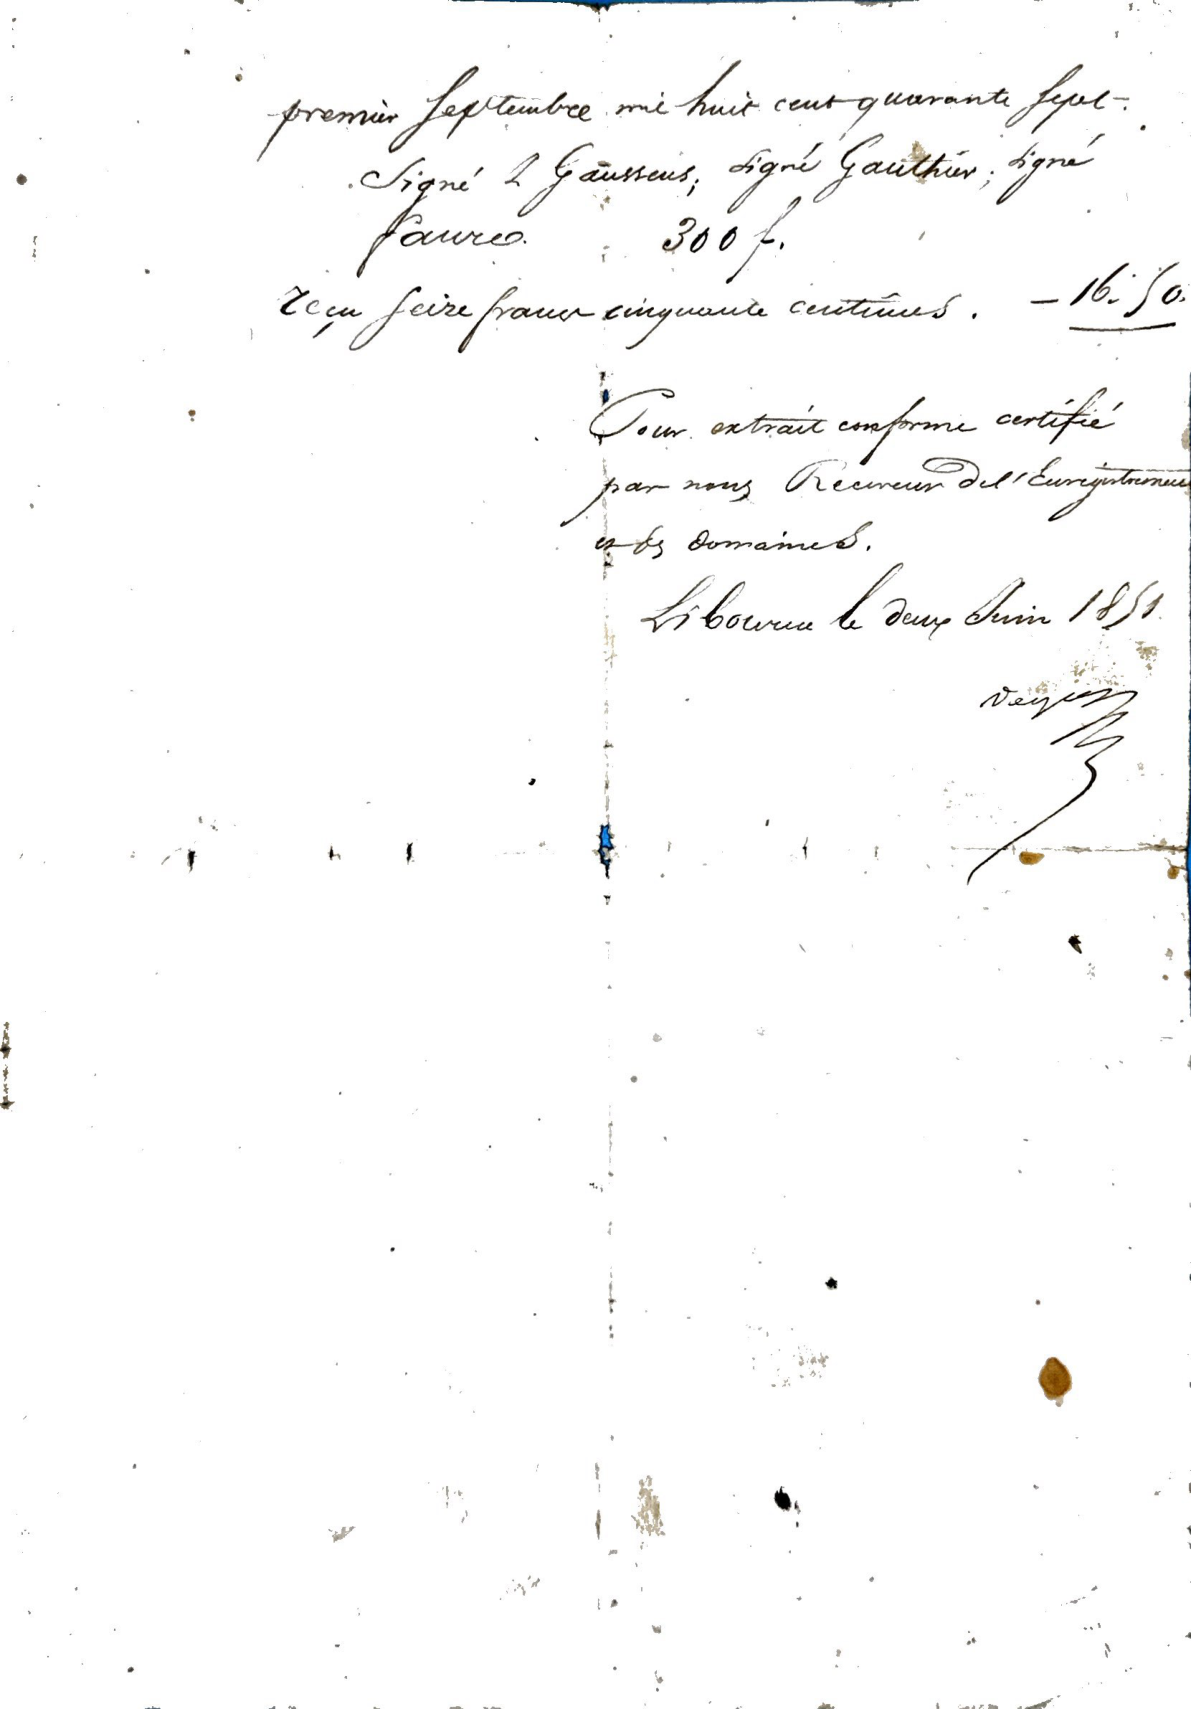 premier septembre mil huit cent quarante sept.
Signé L Gaussens; signé Gauthier; signé
Faure. 300 f.
Reçu seize francs cinquante centimes. — 16. 50.
Pour extrait conforme certifié
par nous Receveur de l'Enregistrement
et des domaines.
Libourne le deux Juin 1851